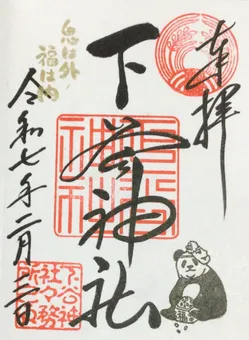 奉拝
下谷神社
鬼は外
福は内
令和七年二月二日
下谷神
社々務
所印